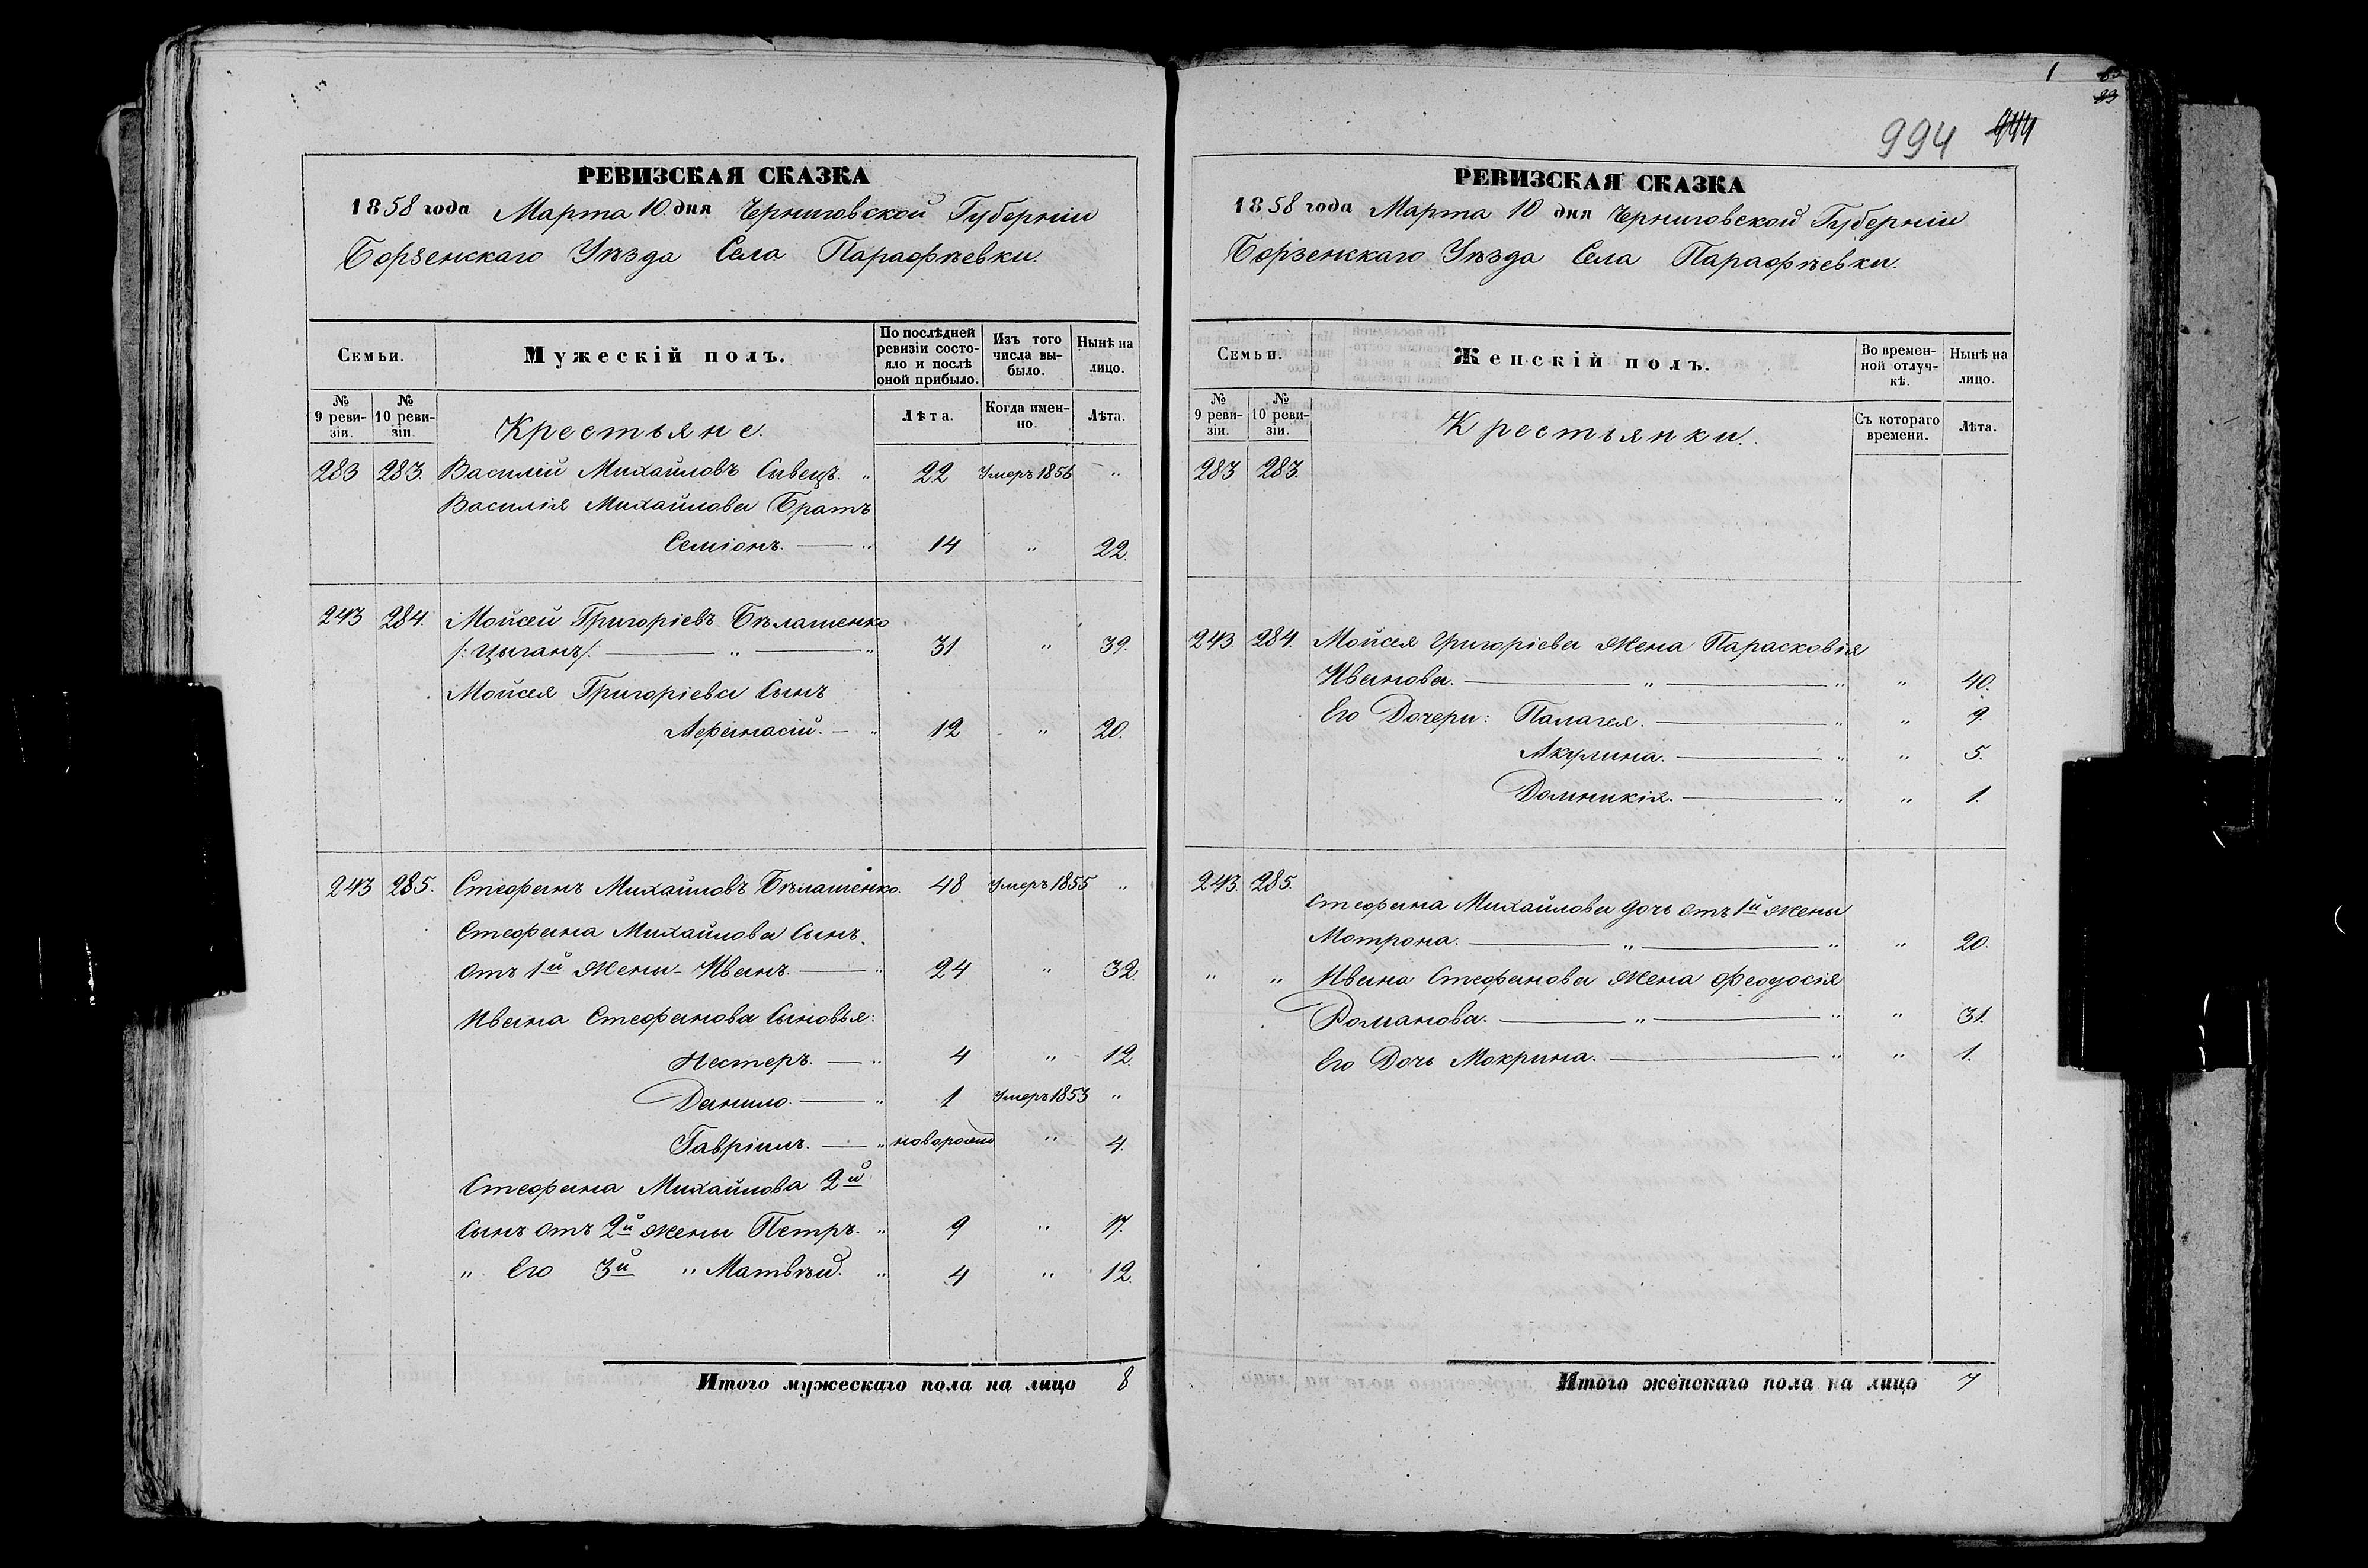 РЕВИЗСКАЯ СКАЗКА
1858 года Марта 10 дня Черниговской Губерніи
Борзенскаго Уѣзда Села Парафѣевки.
Семьи.
Мужескій полъ.
По послѣдней ревизіи состояло и послѣ оной прибыло.
Изъ того числа выбыло.
Нынѣ на лицо.
№ 9 ревизіи.
№ 10 ревизіи.
Крестьяне.
Лѣта.
Когда именно.
Лѣта.
283 283. Василій Михайловъ Сивецъ. " 22 Умеръ 1856 "
Василія Михайлова Братъ
Семіонъ. — " 14 " 22.
243 284. Мойсей Григоріевъ Бѣлашенко
/:Цыганъ/: — " — " 31. " 39.
Мойсея Григоріева Сынъ
Афанасій. — " 12 " 20.
243 285. Стефанъ Михайловъ Бѣлашенко. 48 Умеръ 1855 "
Стефана Михайлова Сынъ
отъ 1й Жены - Иванъ. — " 24 " 32.
Ивана Стефанова Сыновья:
Нестеръ. — " 4 " 12.
Данило. — " 1 Умеръ 1853 "
Гавріилъ. — " новорожд " 4.
Стефана Михайлова 2й
Сынъ отъ 2й Жены Петръ. " 9 " 17.
" Его 3й " Матвѣй. " 4 " 12.
Итого мужескаго пола на лицо 8
1
994 944
РЕВИЗСКАЯ СКАЗКА
1858 года Марта 10 дня Черниговской Губерніи
Борзенскаго Уѣзда Села Парафѣевки.
Семьи.
Женскій полъ.
Во временной отлучкѣ.
Нынѣ на лицо.
№ 9 ревизіи.
№ 10 ревизіи.
Крестьянки.
Съ котораго времени.
Лѣта.
283 283.
243. 284. Мойсея Григоріева Жена Парасковія
Иванова. — " — " " 40.
Его Дочери: Палагея. — " " 9.
Акулина. — " " 5.
Домникія. — " " 1.
243. 285.
Стефана Михайлова дочь отъ 1й Жены
Мотрона. — " — " " 20.
" " Ивана Стефанова Жена Феодосія
Романова. — " — " " 31.
Его Дочь Мокрина. — " " 1.
Итого женскаго пола на лицо 7